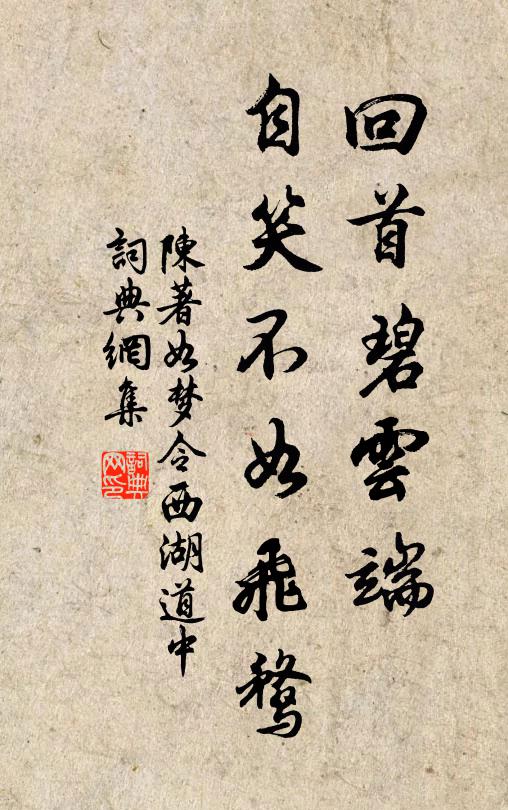 回首碧雲端
自笑不如飛鶩
陳著如梦令西湖道中
詞典網集
詞典網印